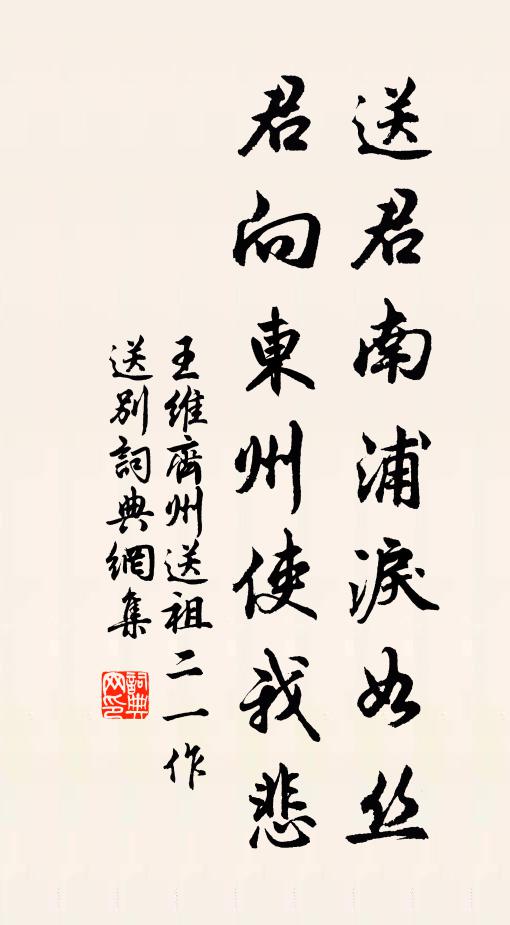 送君南浦淚如丝
君向東州使我悲
王維齊州送祖二一作
送别詞典網集
詞典
网印